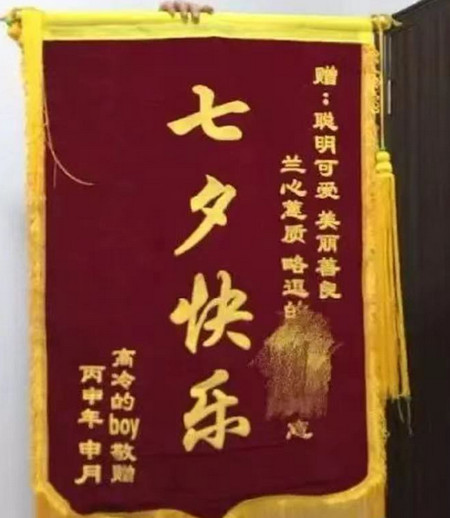 赠：聪明可爱 美丽善良
兰心蕙质 略逗的
七夕快乐
高冷的boy敬赠
丙申年 申月